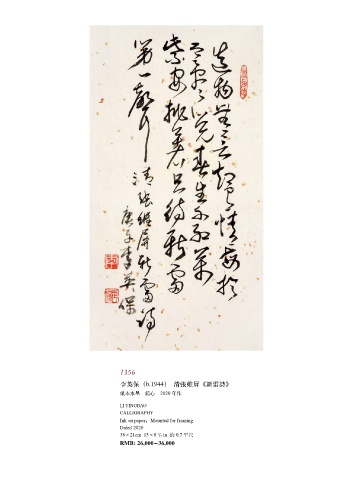 造物無言却有情每於
寒盡覺春生千紅萬
紫安排著只待新雷
第一聲 清張維屏新雷詩
庚子李英保
1356
李英保（b.1944） 清張維屏《新雷詩》
鏡心 2020年作
LI YINGBAO
CALLIGRAPHY
Ink on paper, Mounted for framing
Dated 2020
38×21cm 15×8 ¼ in 約0.7平尺
RMB: 26,000–36,000